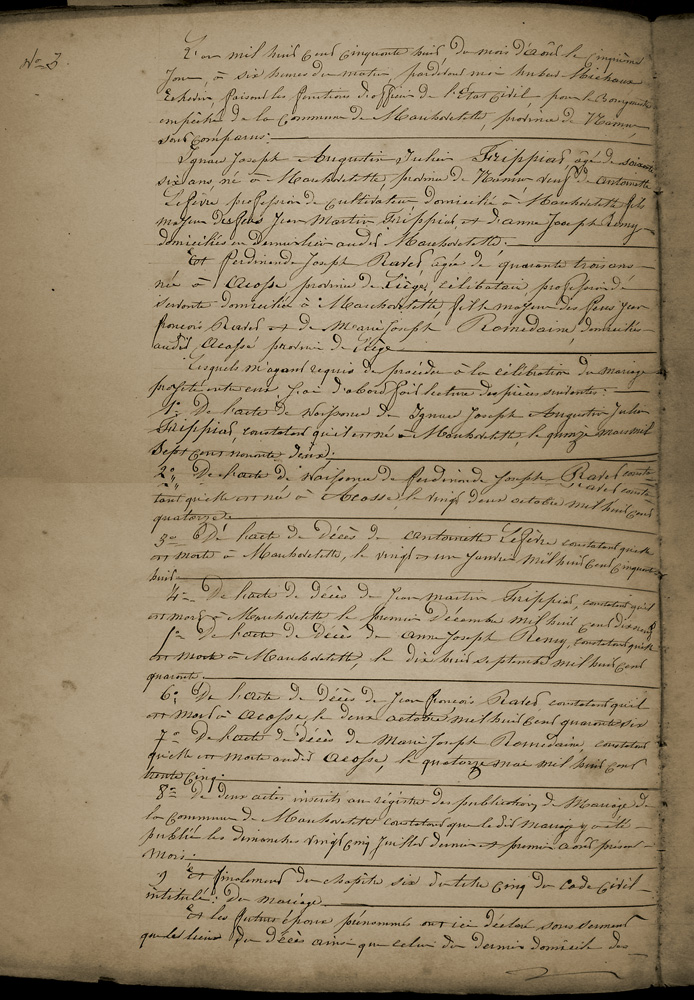 No 3
L'an mil huit cent cinquante huit du mois d'août le cinquième
jour, à six heures du matin, pardevant moi hubert Michaux
Echevin faisant les fonctions d'officier de l'Etat Civil, pour le Bourgmestre
empêché de la Commune de Mauhordette, province de Namur,
sont Comparus:
Ignace Joseph Augustin Julien Frippiat agé de soixante
six ans, né à province de Namur veuf de antoinette
Lefèvre profession de Cultivateur domicilié à fils
majeur des feus Jean Martin Frippiat et d'anne Joseph Remy
domiciliés en dernier lieu audit
Et Ferdinande Joseph Ravet, agée de quarante trois ans
née à Acosse province de Liège, célibataire profession de
servante domiciliée à fille majeure des feus Jean
françois Ravet et de Marie Joseph Romedaine, domiciliés
audit Acosse province de Liège
Lesquels m'ayant requis de procéder à la célébration du mariage
projeté entre eux, j'ai d'abord fait lecture des pièces suivantes:
1o De l'acte de Naissance de Ignace Joseph Augustin Julien
Frippiat, constatant qu'il est né à le quinze mars mil
Sept cent nonante deux;
2o De l'acte de Naissance de Ferdinande Joseph Ravet consta-
tant qu'elle est née à Acosse, le vingt deux octobre mil huit cent
quatorze
3o De l'acte de Décès de antoinette Lefèvre constatant qu'elle
est morte à le vingt et un Janvier mil huit cent cinquante
huit
4o De l'acte de décès de Jean martin Frippiat, constatant qu'il
est mort à le premier Décembre mil huit cent dix neuf
5o De l'acte de Décès de anne Joseph Remy, constatant qu'elle
est morte à le dix huit septembre mil huit cent
quarante
6o De l'acte de décès de Jean françois Ravet constatant qu'il
est mort à Acosse, le deux octobre mil huit cent quarante six
7o De l'acte de décès de Marie Joseph Romedaine, constatant
qu'elle est morte audit Acosse, le quatorze mai mil huit cent
trente cinq.
8o De deux actes inscrits au régistre des publications de Mariage de
la Commune de constatant que le dit mariage y a été
publié les dimanches vingt cinq Juillet dernier et premier août présent
mois;
9 Et finalement du chapitre six du titre cinq du code civil
intitulé: Du mariage
Et les futurs époux prénommés ont ici déclaré sous serment
que le lieu du décès ainsi que celui du dernier domicile des